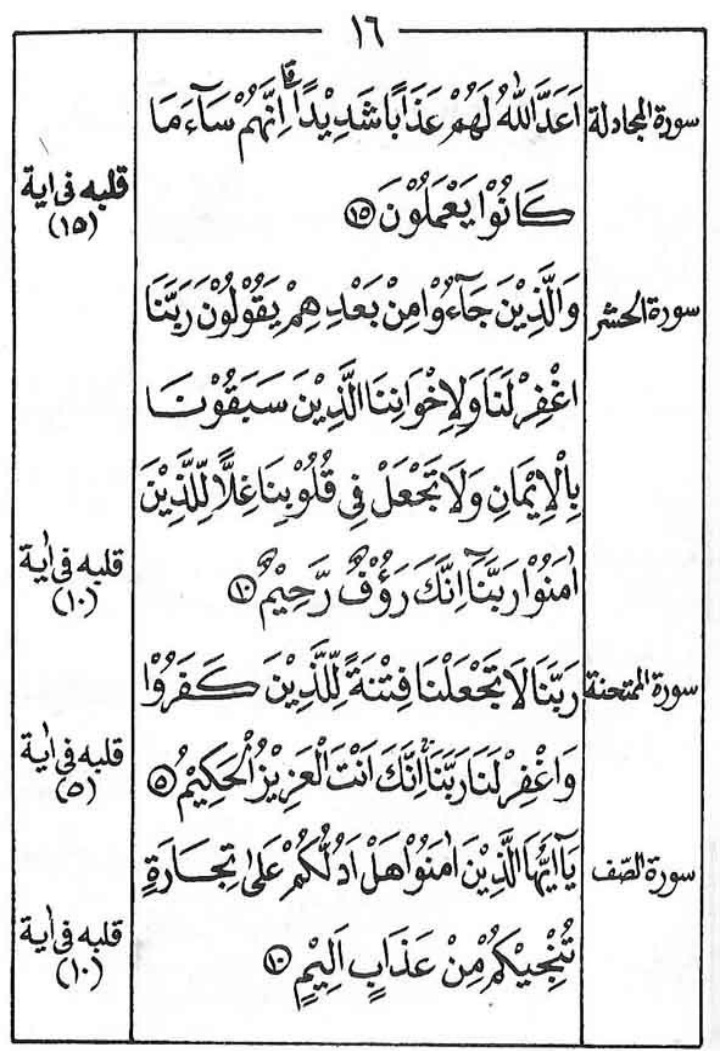 ١٦
سورة المجادلة
اَعَدَّ اللّٰهُ لَهُمْ عَذَابًا شَدِيْدًا ۗ اِنَّهُمْ سَآءَ مَا
كَانُوْا يَعْمَلُوْنَ ⑮
قلبه فى اية
(١٥)
سورة الحشر
وَالَّذِيْنَ جَآءُوْا مِنْ بَعْدِهِمْ يَقُوْلُوْنَ رَبَّنَا
اغْفِرْ لَنَا وَلِاِخْوَانِنَا الَّذِيْنَ سَبَقُوْنَا
بِالْاِيْمَانِ وَلَا تَجْعَلْ فِى قُلُوْبِنَا غِلًّا لِّلَّذِيْنَ
اٰمَنُوْا رَبَّنَآ اِنَّكَ رَؤُفٌ رَّحِيْمٌ ⑩
قلبه فى اٰية
(١٠)
سورة الممتحنة
رَبَّنَا لَا تَجْعَلْنَا فِتْنَةً لِّلَّذِيْنَ كَفَرُوْا
وَاغْفِرْ لَنَا رَبَّنَا ۚ اِنَّكَ اَنْتَ الْعَزِيْزُ الْحَكِيْمُ ⑤
قلبه فى اٰية
(٥)
سورة الصّف
يَآ اَيُّهَا الَّذِيْنَ اٰمَنُوْا هَلْ اَدُلُّكُمْ عَلٰى تِجَارَةٍ
تُنْجِيْكُمْ مِّنْ عَذَابٍ اَلِيْمٍ ⑩
قلبه فى اٰية
(١٠)